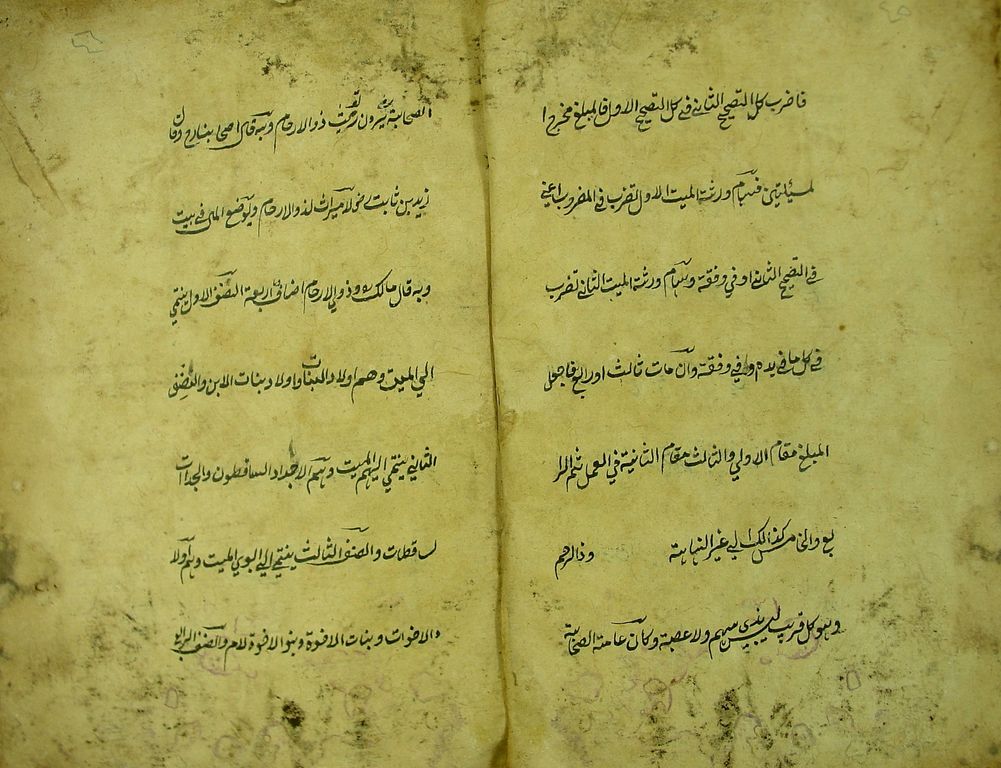 فاضرب كل التصحيح الثاني في كل التصحيح الاول فالمبلغ مخرج ا
لمسئلتين فسهام ورثة الميت الاول تضرب في المضروب اعني
في التصحيح الثاني او في وفقه وسهام ورثة الميت الثاني تضرب
في كل ما في يده او في وفقه وان مات ثالث او رابع فاجعل
المبلغ مقام الاولي والثالث مقام الثانية في العمل ثم الرا
بع والخامس كذلك الي غير النهاية وذا الرحم
وهو كل قريب ليس بذي سهم ولا عصبة وكان عامة الصحابة
الصحابة يرون توريث ذو الارحام وبه قال اصحابنا رح وقال
زيد بن ثابت لا ميراث لذو الارحام ويوضع المال في بيت
وبه قال مالك وذوي الارحام اصناف اربعة الصنف الاول ينتمي
الي الميت وهم اولاد البنات واولاد بنات الابن والصنف
الثاني ينتمي اليهم الميت وهم الاجداد الساقطون والجدات
لساقطات والصنف الثالث ينتمي الي ابوي الميت وهم اولا
د الاخوات وبنات الاخوة وبنو الاخوة لام والصنف الرابع